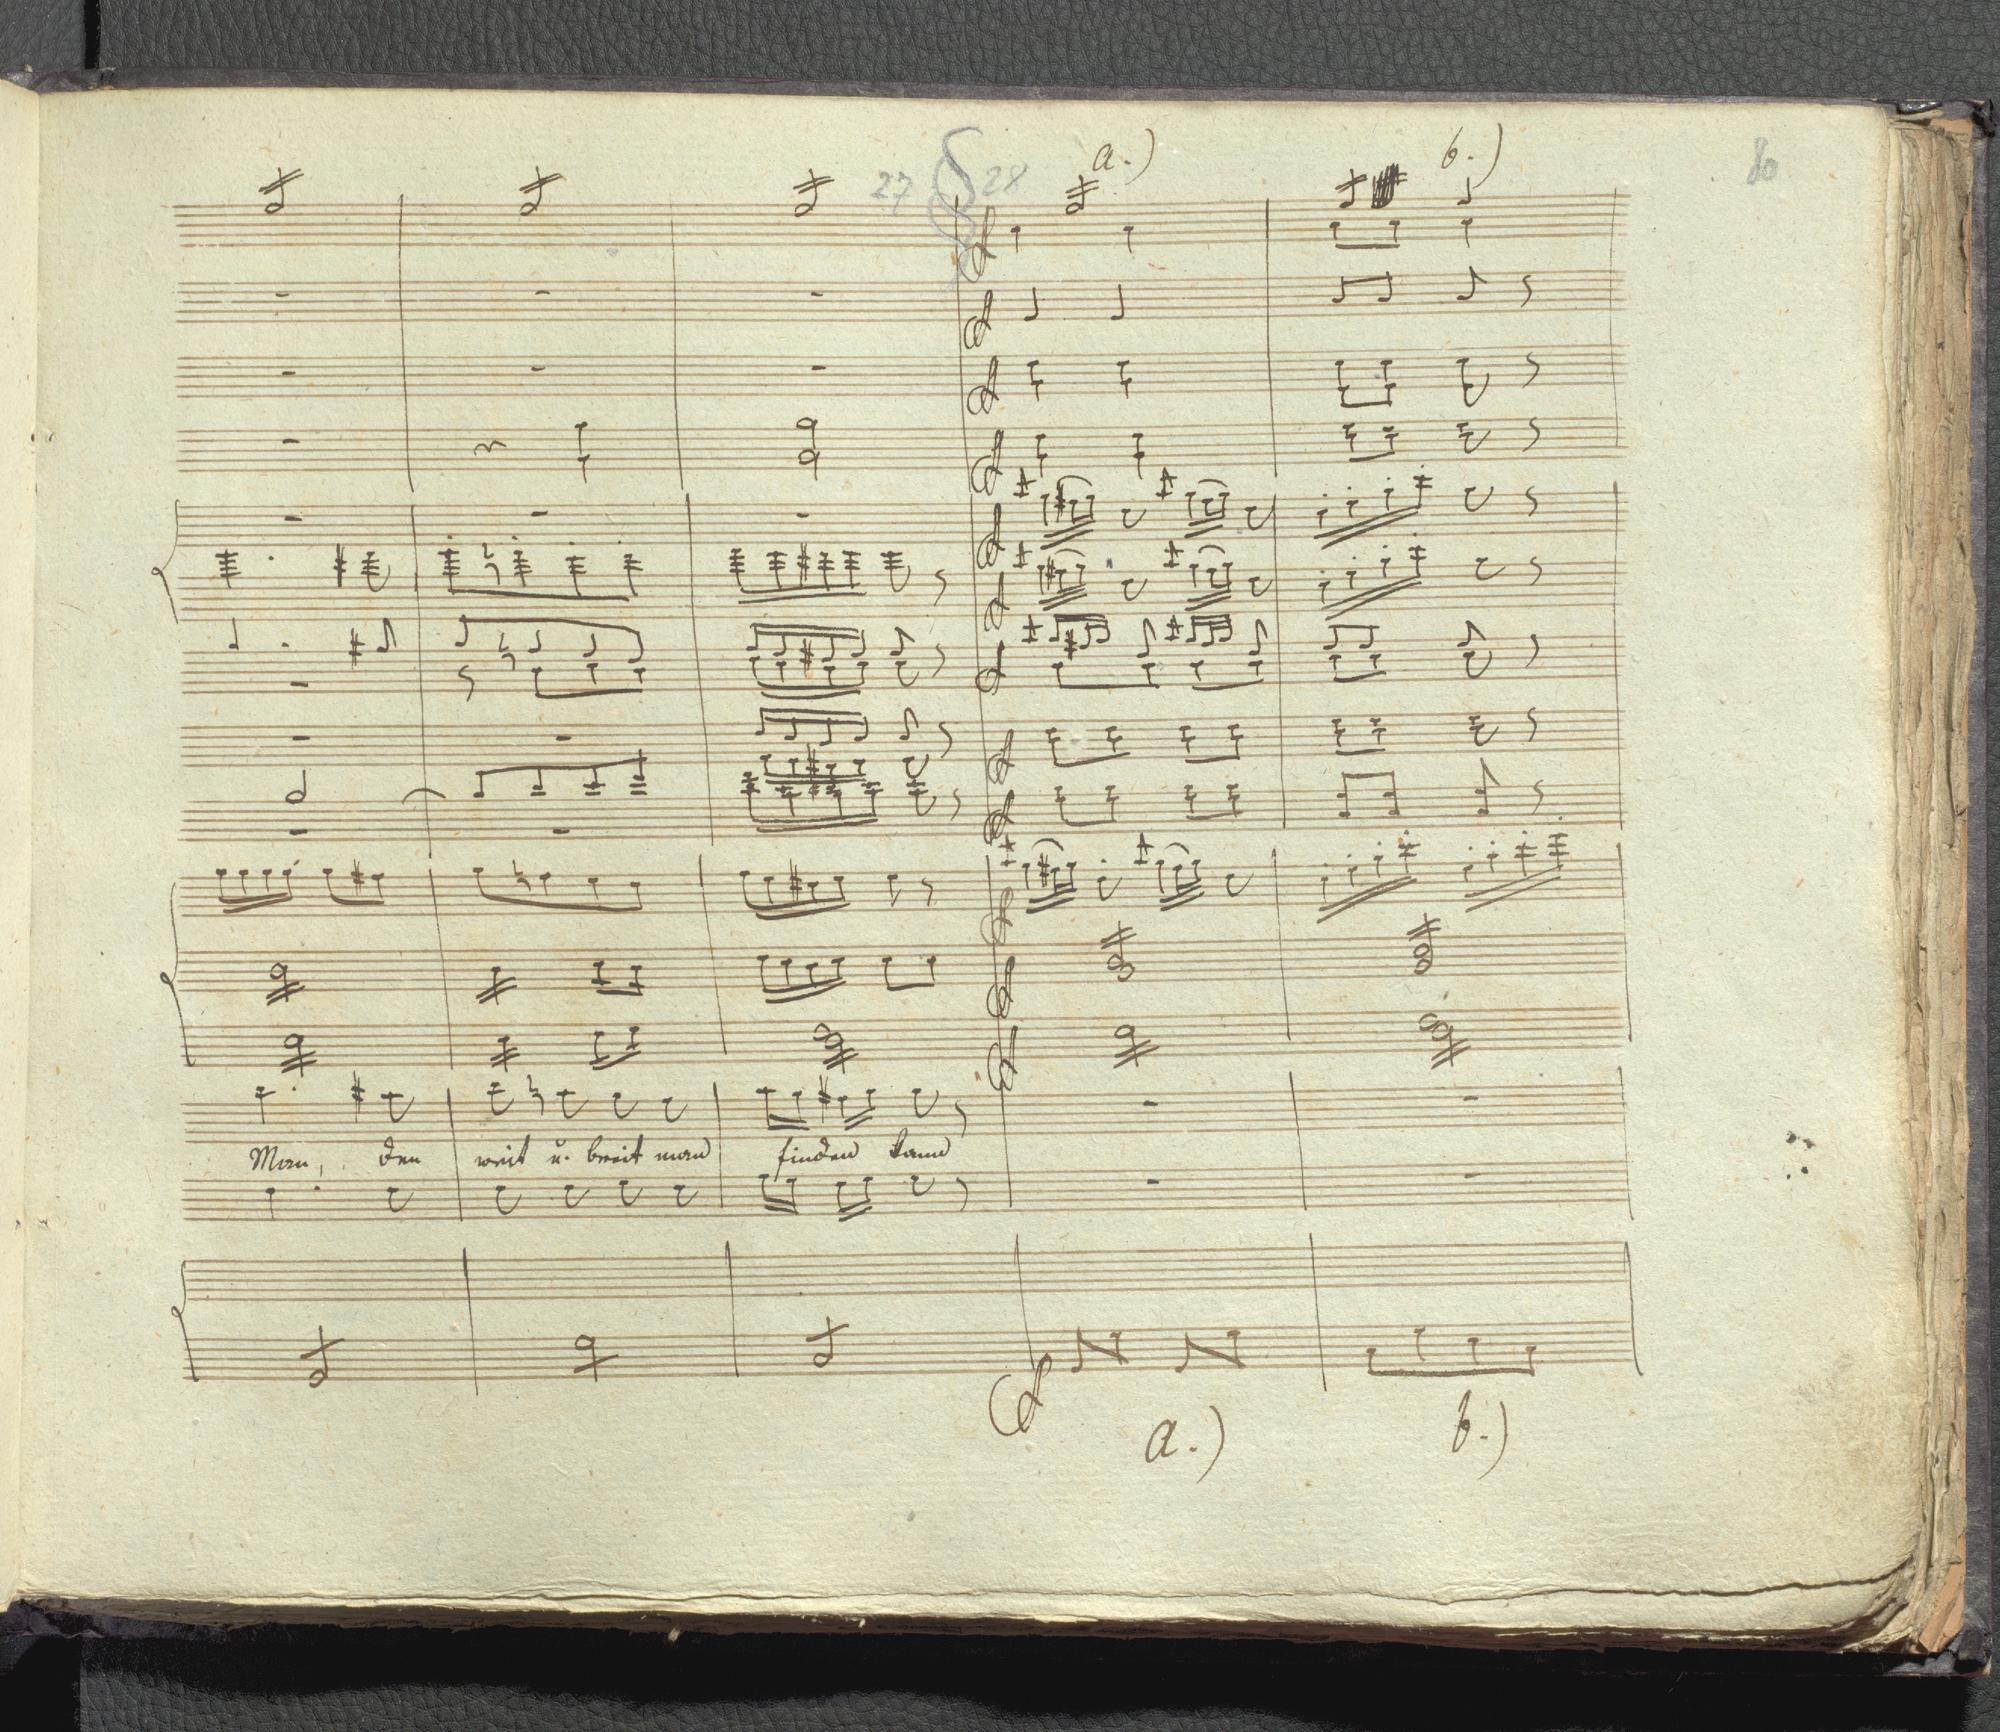 a.) b.) 80
27 28
Man, den weit u. breit man finden kann
a.) b.)